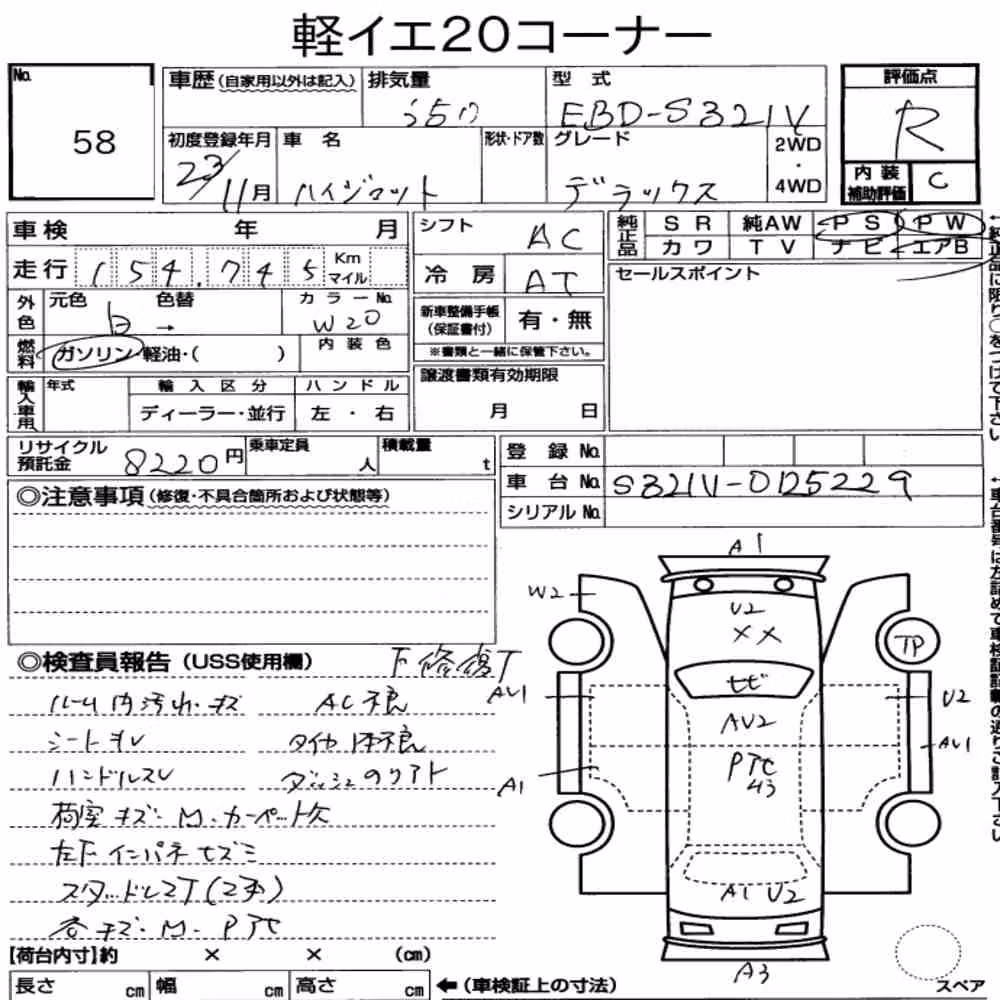 軽イエ20コーナー
No.
58
車歴(自家用以外は記入)
排気量
型 式
評価点
EBD-S321V
R
初度登録年月
車 名
形状・ドア数
グレード
2WD
・
4WD
23/11月
デラックス
内 装
補助評価
C
車検 年 月
シフト
AC
純正品
SR 純AW PS PW
カワ TV ナビ エアB
走行 154,745 Km マイル
冷 房
AT
セールスポイント
外色
元色 色替
カラーNo.
白 →
W20
新車整備手帳
(保証書付)
有・無
燃料
ガソリン・軽油・( )
内装色
※書類と一緒に保管下さい。
輸入車用
年式
輸入区分
ハンドル
ディーラー・並行
左・右
譲渡書類有効期限
月 日
リサイクル
預託金
8220円
乗車定員
人
積載量
t
登 録 No.
車 台 No. S321V-0125229
シリアル No.
◎注意事項(修復・不具合箇所および状態等)
◎検査員報告(USS使用欄)
ルーム内汚れ・キズ
AC不良
シートヨレ
ハンドルスレ
荷室キズ・M・カーペット欠
スタッドレス
A1
W2
U2
XX
TP
ヒビ
AU1
U2
AU2
AU1
A1
A1 U2
A3
スペア
【荷台内寸】約 × × (cm)
長さ cm 幅 cm 高さ cm
←(車検証上の寸法)
←純正品に限り○をつけて下さい